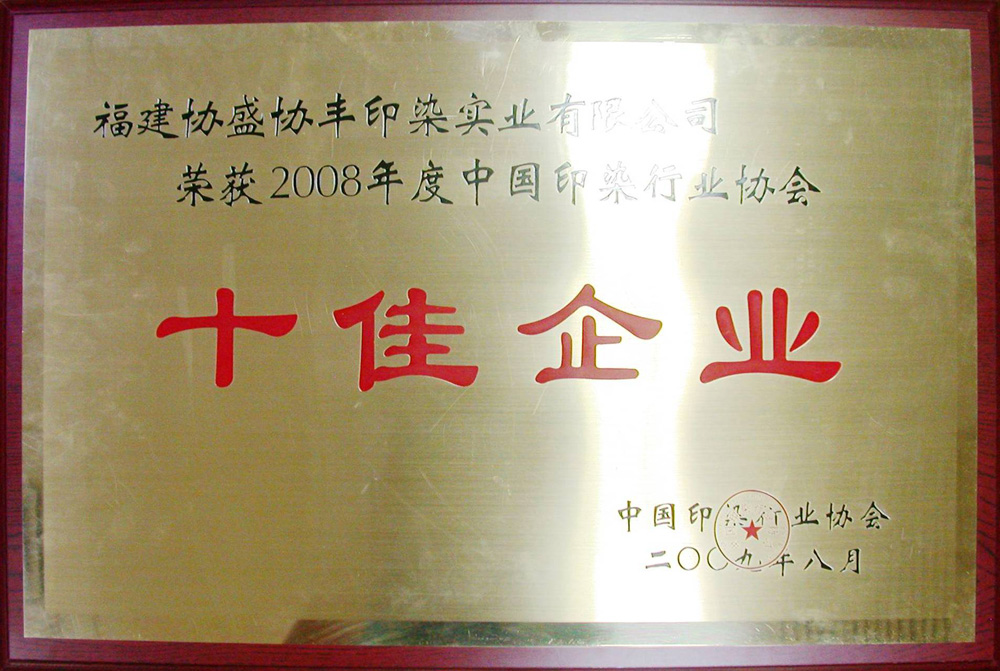 福建协盛协丰印染实业有限公司
荣获2008年度中国印染行业协会
十佳企业
中国印染行业协会
二〇〇九年八月